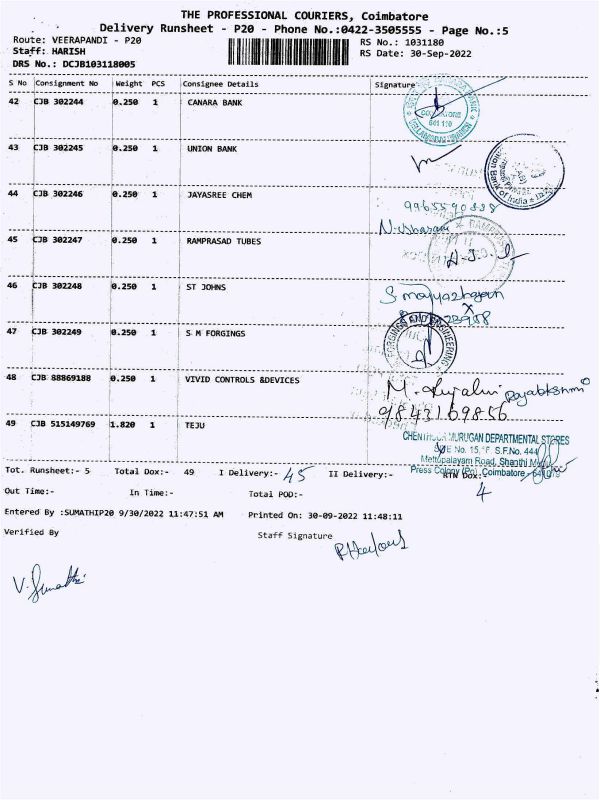 THE PROFESSIONAL COURIERS, Coimbatore
Delivery Runsheet - P20 - Phone No.:0422-3505555 - Page No.:5
Route: VEERAPANDI - P20 RS No.: 1031180
Staff: HARISH RS Date: 30-Sep-2022
DRS No.: DCJB103118005
S No Consignment No Weight PCS Consignee Details Signature
42 CJB 302244 0.250 1 CANARA BANK
43 CJB 302245 0.250 1 UNION BANK
Union Bank of India
44 CJB 302246 0.250 1 JAYASREE CHEM
45 CJB 302247 0.250 1 RAMPRASAD TUBES
46 CJB 302248 0.250 1 ST JOHNS
47 CJB 302249 0.250 1 S M FORGINGS
FORGINGS AND ENGINEERING
48 CJB 88869188 0.250 1 VIVID CONTROLS &DEVICES
9843169856
49 CJB 515149769 1.820 1 TEJU
MURUGAN DEPARTMENTAL STORES
No. 15, S.F.No. 444
Mettupalayam Road, Shanthi
Press Colony (Po), Coimbatore
Tot. Runsheet:- 5 Total Dox:- 49 I Delivery:- 45 II Delivery:- RTN Dox:- 4
Out Time:- In Time:- Total POD:-
Entered By :SUMATHIP20 9/30/2022 11:47:51 AM Printed On: 30-09-2022 11:48:11
Verified By Staff Signature
V. Sumathi